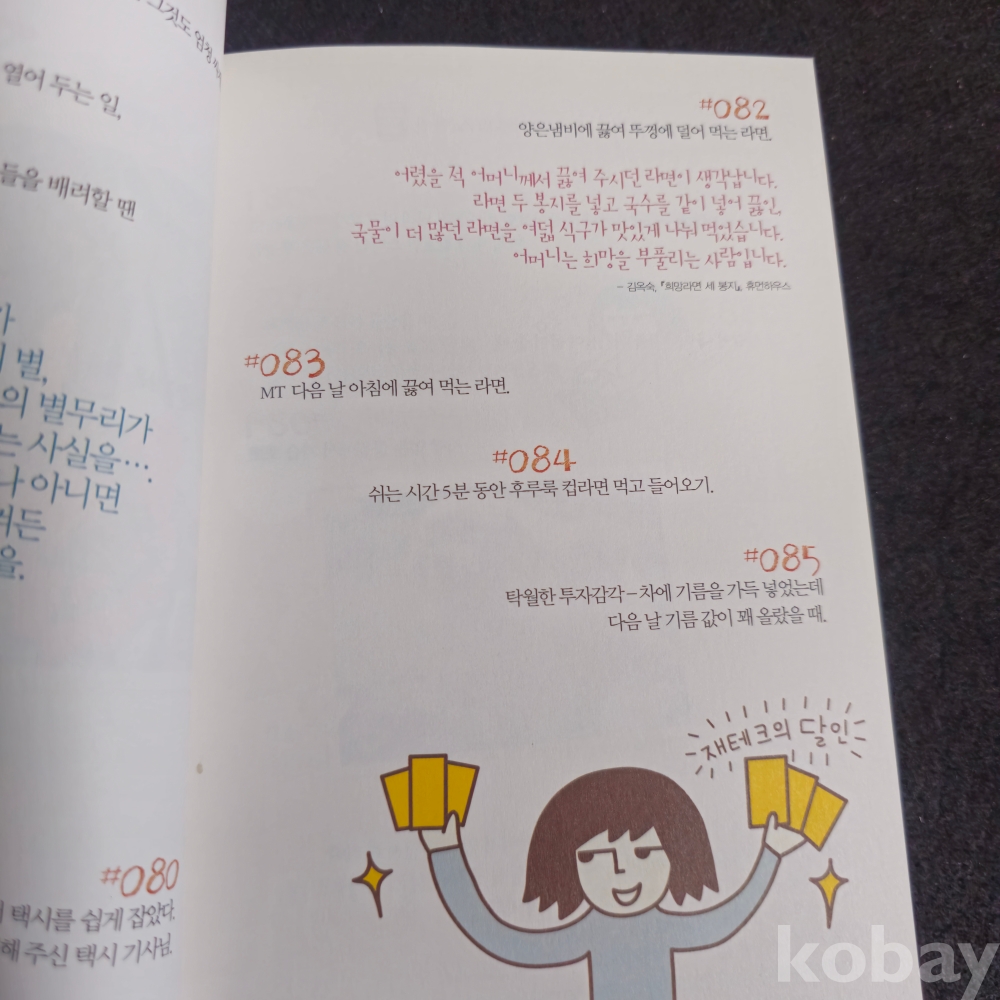 그것도 엄청
열어 두는 일,
들을 배려할 땐
별,
의 별무리가
는 사실을…
나 아니면
#080
택시를 쉽게 잡았다.
해 주신 택시 기사님.
#082
양은냄비에 끓여 뚜껑에 덜어 먹는 라면.
어렸을 적 어머니께서 끓여 주시던 라면이 생각납니다.
라면 두 봉지를 넣고 국수를 같이 넣어 끓인,
국물이 더 많던 라면을 여덟 식구가 맛있게 나눠 먹었습니다.
어머니는 희망을 부풀리는 사람입니다.
- 김옥숙, 『희망라면 세 봉지』, 휴먼하우스
#083
MT 다음 날 아침에 끓여 먹는 라면.
#084
쉬는 시간 5분 동안 후루룩 컵라면 먹고 들어오기.
#085
탁월한 투자감각 – 차에 기름을 가득 넣었는데
다음 날 기름 값이 꽤 올랐을 때.
재테크의 달인
kobay